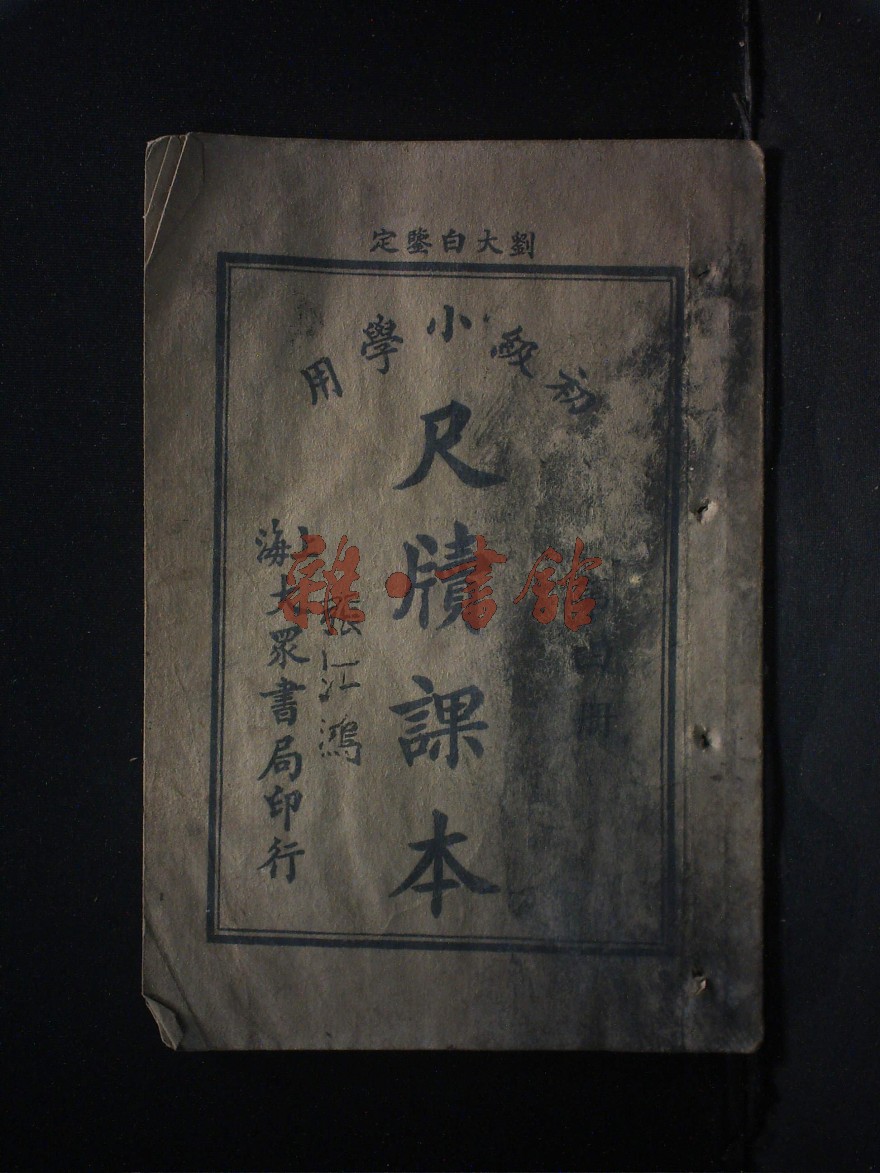 劉大白鑒定
初級小學用
尺牘課本
第四冊
張江鴻
上海大眾書局印行
雜·書館